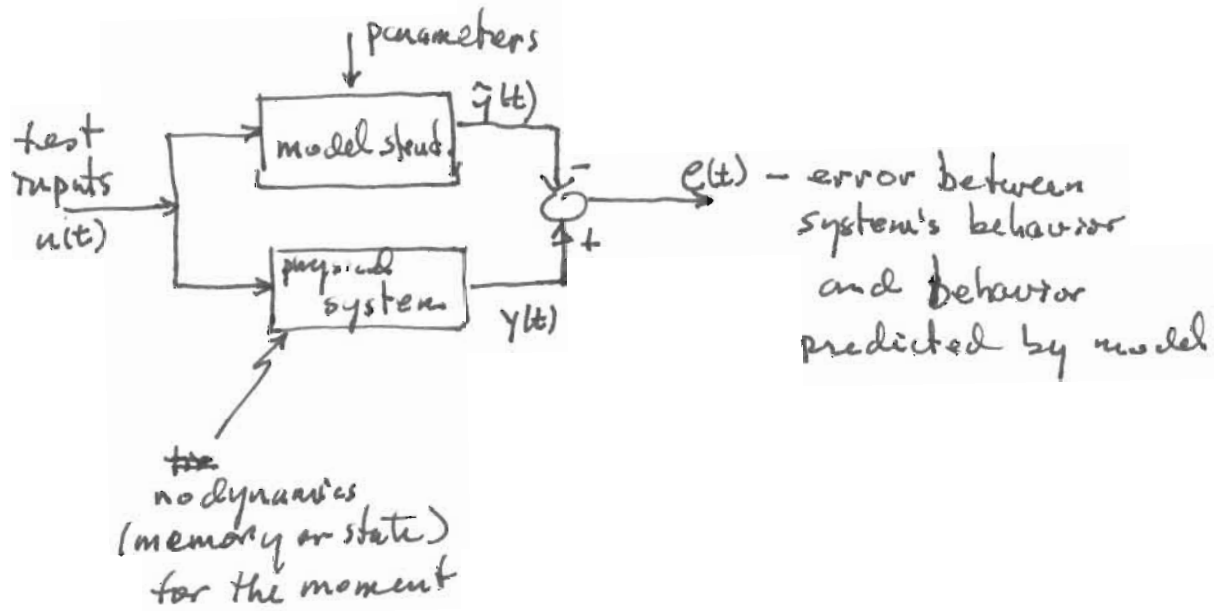 parameters
test
inputs
u(t)
model struct.
ŷ(t)
-
+
physical
system
y(t)
e(t) - error between
system's behavior
and behavior
predicted by model
no dynamics
(memory or state)
for the moment